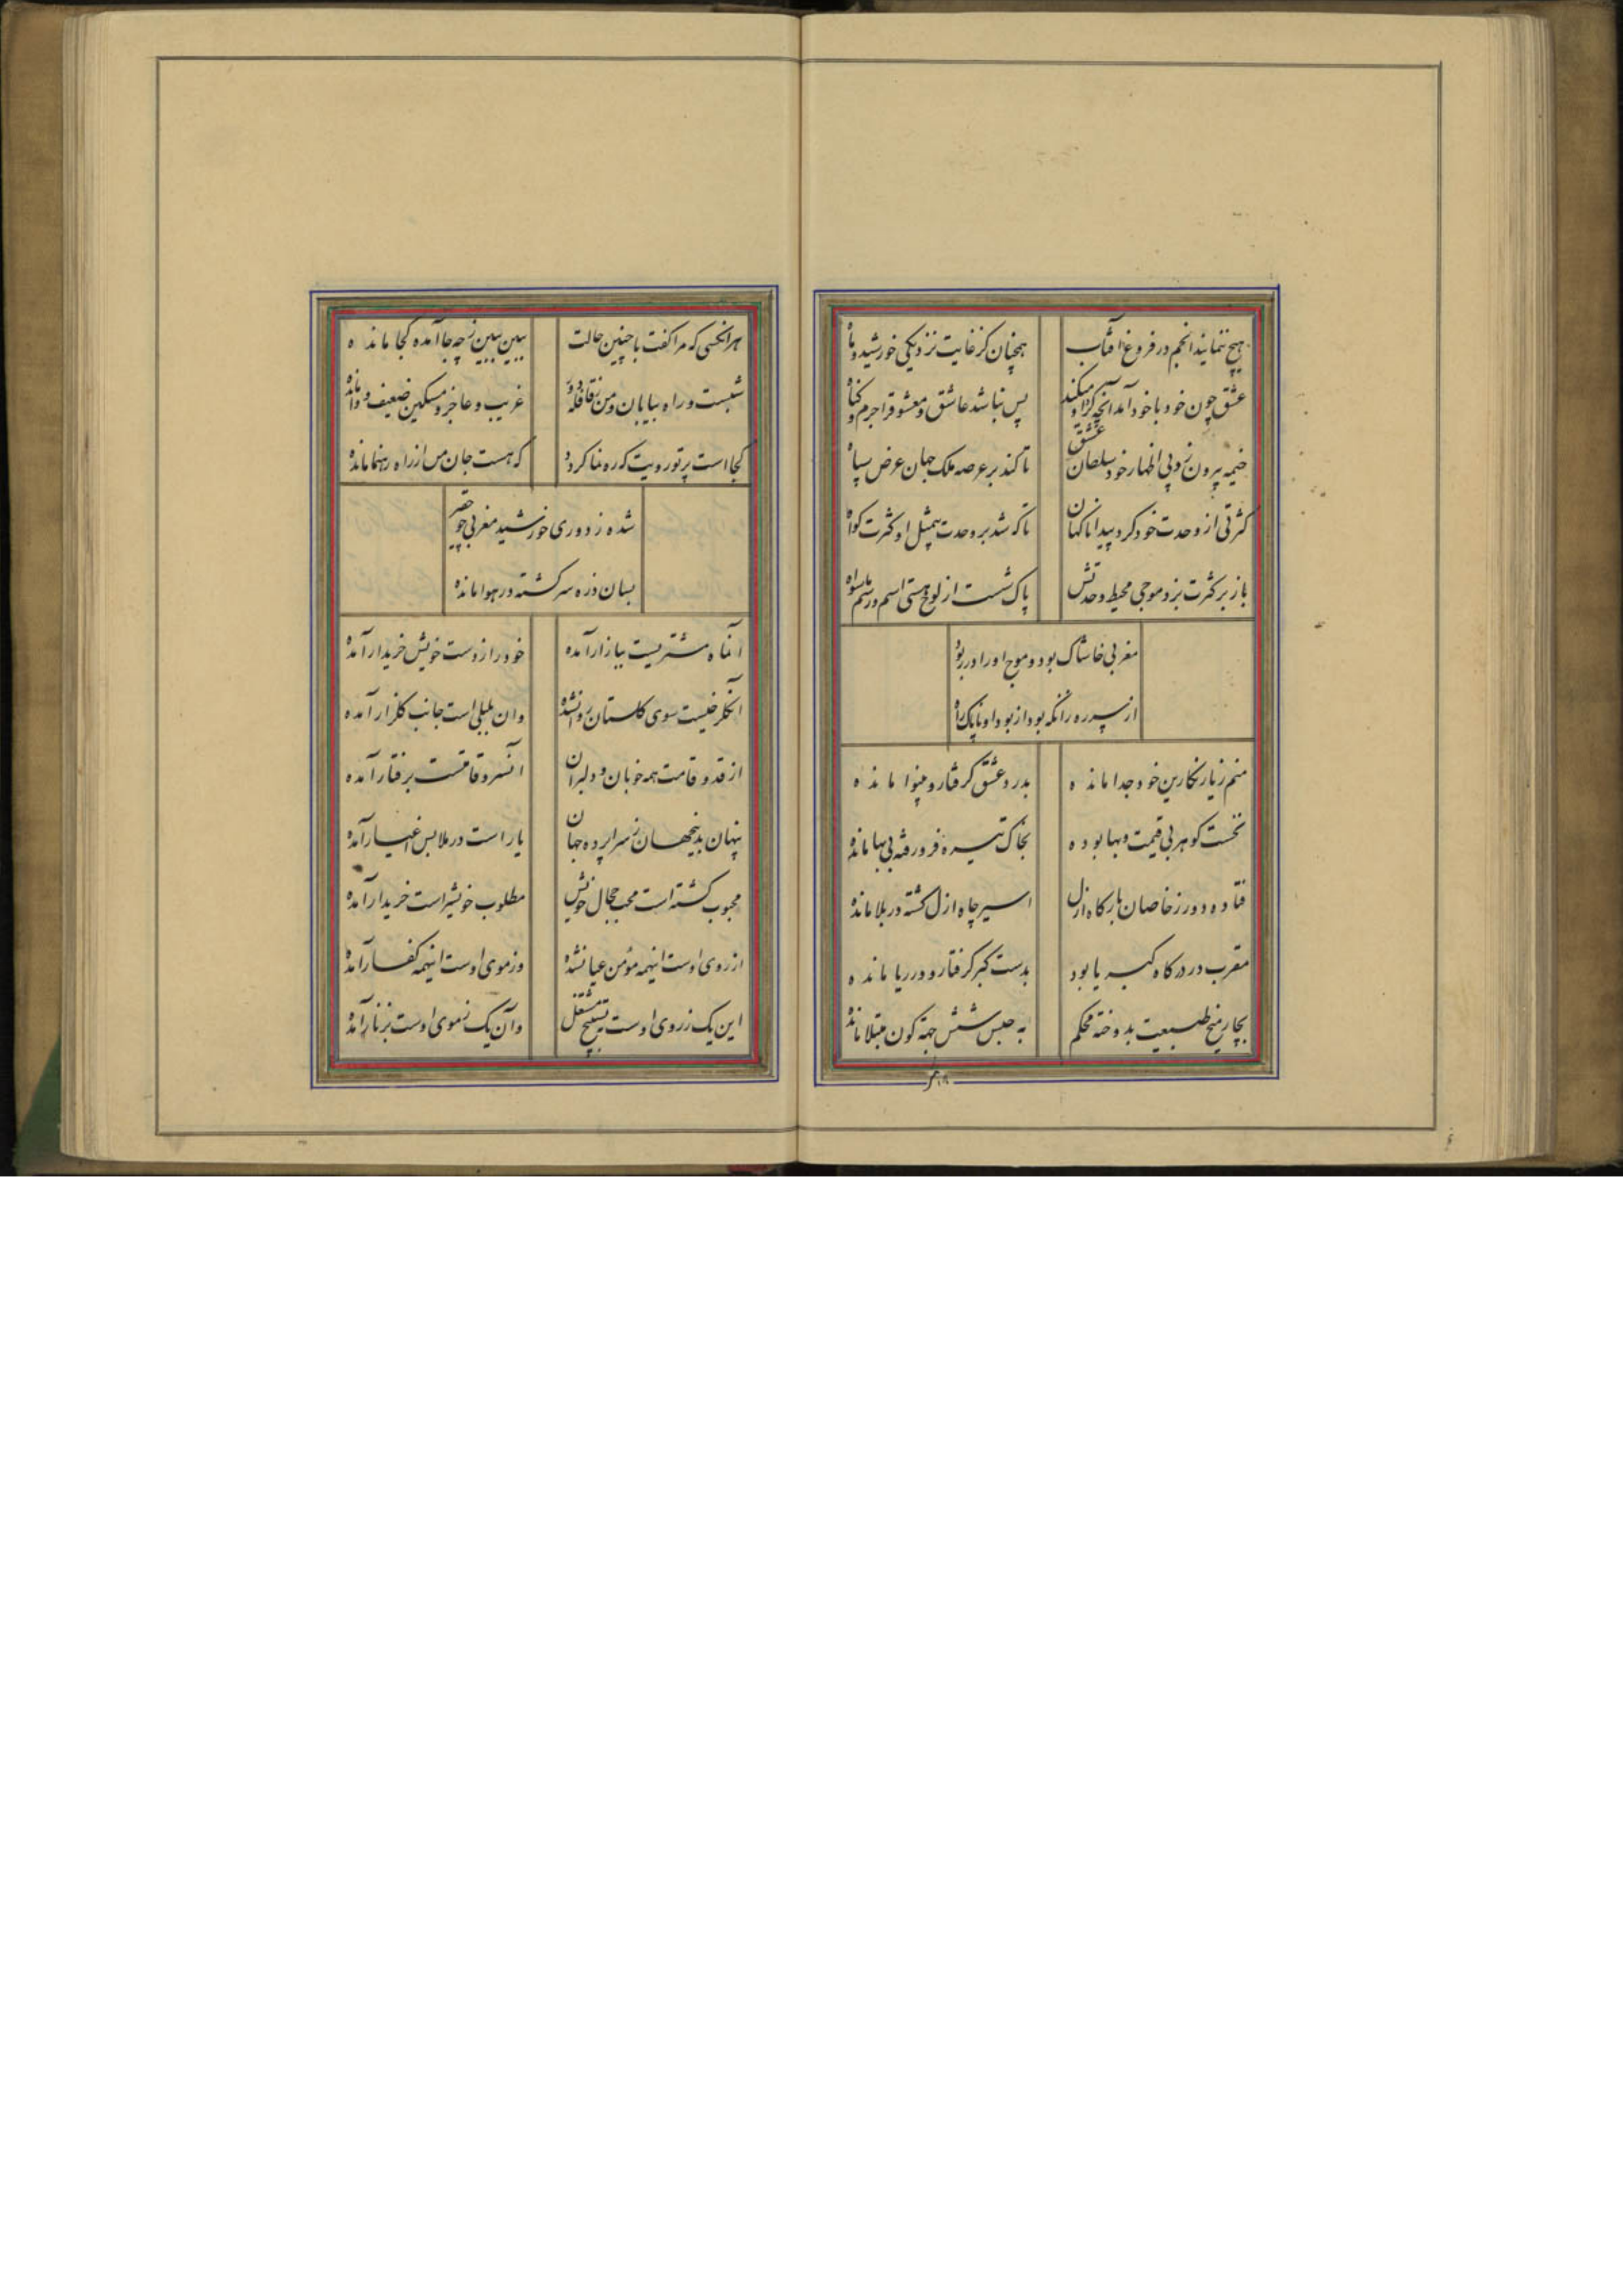 هیچ ننماید انجم در فروغ آفتاب
همچنان کز غایت نزدیکی خورشید و ماه
عشق چون خود با خود آمد آنچه کرد او میکند
پس نباشد عاشق و معشوق را جرم و گناه
خیمه بیرون زد پی اظهار خود سلطان عشق
تا کند بر عرصه ملک جهان عرض سپاه
کثرتی از وحدت خود کرد پیدا ناکهان
تا که شد بر وحدت بیمثل او کثرت کواه
باز بر کثرت بزد موجی محیط وحدتش
پاک شست از لوح هستی اسم و رسم ماسواه
مغربی خاشاک بود و موج او را در ربود
از سر ره زانکه بود از بود او ناپاک راه
منم ز یار نکارین خود جدا مانده
بدرد عشق کرفتار و بینوا مانده
نخست کوهر بی قیمت و بها بوده
بخاک تیره فرو رفته بی بها مانده
فتاده دور ز خاصان بارکاه ازل
اسیر چاه ازل کشته در بلا مانده
مقرب در درکاه کبریا بود
بدست کبر کرفتار و در ریا مانده
بچار میخ طبیعت بدوخته محکم
به حبس شش جهة کون مبتلا مانده
هر آنکسی که مرا کفت با چنین حالت
ببین ببین ز چه جا آمده کجا مانده
شبست و راه بیابان و من ز قافله دور
غریب و عاجز و مسکین ضعیف و وامانده
کجا است پرتو رویت که ره نما کردد
که هست جان من از راه رهنما مانده
شده ز دوری خورشید مغربی چو حقیر
بسان ذره سرکشته در هوا مانده
آنماه مشتریست ببازار آمده
خود را ز دست خویش خریدار آمده
آن کلرخیست سوی کلستان روانشده
وان بلبلی است جانب کلزار آمده
از قد و قامت همه خوبان و دلبران
آنسرو قامتست برفتار آمده
پنهان بدینجهان ز سراپرده جهان
یار است در ملابس اغیار آمده
محبوب کشته است محب جمال خویش
مطلوب خویش است خریدار آمده
از روی اوست اینهمه مؤمن عیانشده
وز موی اوست اینهمه کفار آمده
این یک ز روی اوست بتسبیح مشتغل
وآن یک ز موی اوست بزنار آمده